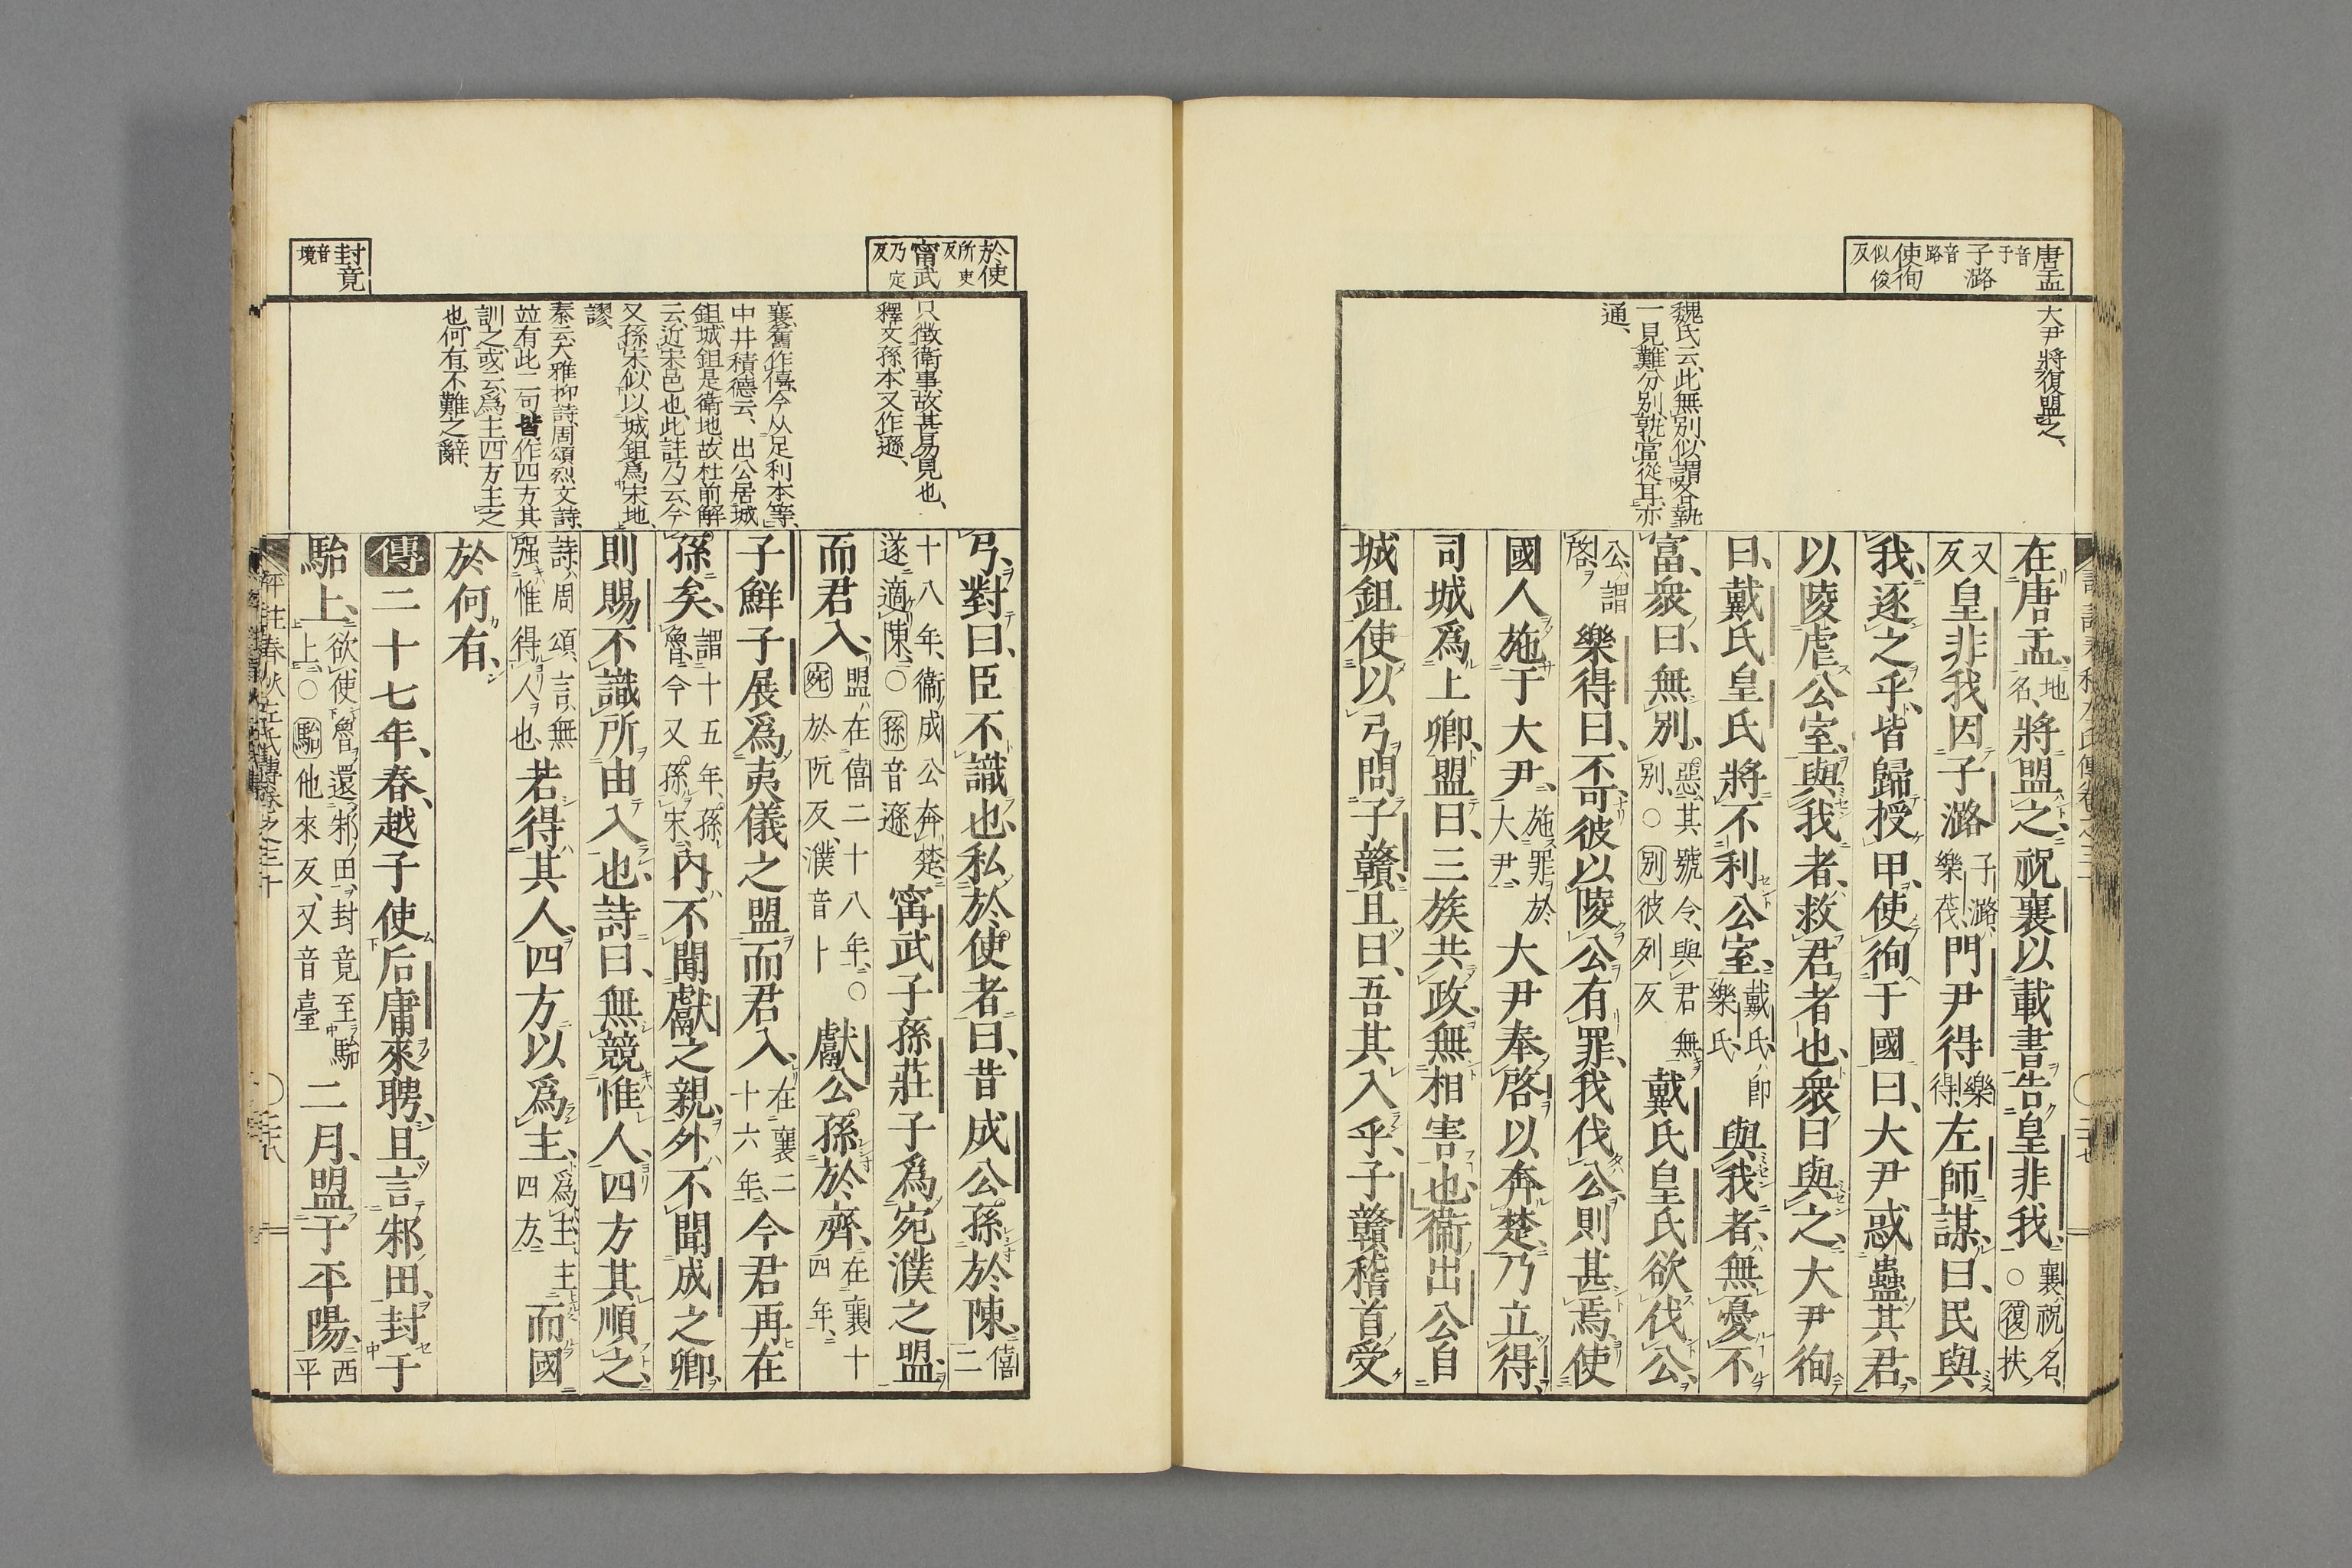 唐盂音于
子潞音路
使徇似俊反
大尹將復盟之、
魏氏云、此無別、似謂各執
一見、難分別、孰當從耳、亦
通、
在唐盂、地名、將盟之、祝襄以載書告皇非我、襄、祝名、○復扶
又反皇非我因子潞子潞、樂茷、門尹得樂得左師謀、曰、民與
我、逐之乎、皆歸授甲、使徇于國曰、大尹惑蠱其君、
以陵虐公室、與我者、救君者也、衆曰、與之、大尹徇
曰、戴氏皇氏將不利公室、戴氏、即樂氏、與我者、無憂不
富、衆曰、無別、惡其號令、與君無別、○別彼列反戴氏皇氏欲伐公、
公、謂啓、樂得曰、不可、彼以陵公有罪、我伐公、則甚焉、使
國人施于大尹、施罪於大尹、大尹奉啓以奔楚、乃立得、
司城爲上卿、盟曰、三族共政、無相害也、衞出公自
城鉏使以弓問子贛、且曰、吾其入乎、子贛稽首受
於使所吏反
甯武乃定反
封竟音境
只徴衞事、故甚易見也、
釋文、孫、本又作遜、
襄舊作僖、今从足利本等、
中井積德云、出公居城
鉏、城鉏是衞地、故杜前解
云、近宋邑也、此註乃云、今
又孫宋、似以城鉏爲宋地、
謬、
秦云、大雅抑詩、周頌烈文詩、
竝有此二句、皆作四方其
訓之、或云、爲主四方主之
也、何有、不難之辭、
弓、對曰、臣不識也、私於使者曰、昔成公孫於陳、僖二
十八年、衞成公奔楚、遂適陳、○孫音遜甯武子孫莊子爲宛濮之盟、
而君入、盟在僖二十八年、○宛於阮反、濮音卜獻公孫於齊、在襄十四年、
子鮮子展爲夷儀之盟而君入、在襄二十六年、今君再在
孫矣、謂十五年、孫魯、今又孫宋、內不聞獻之親、外不聞成之卿、
則賜不識所由入也、詩曰、無競惟人、四方其順之、
詩周頌、言無强惟得人也、若得其人、四方以爲主、爲主、主四方、而國
於何有、
傳二十七年、春、越子使后庸來聘、且言邾田、封于
駘上、欲使魯還邾田、封竟至駘上、○駘他來反、又音臺二月、盟于平陽、西平